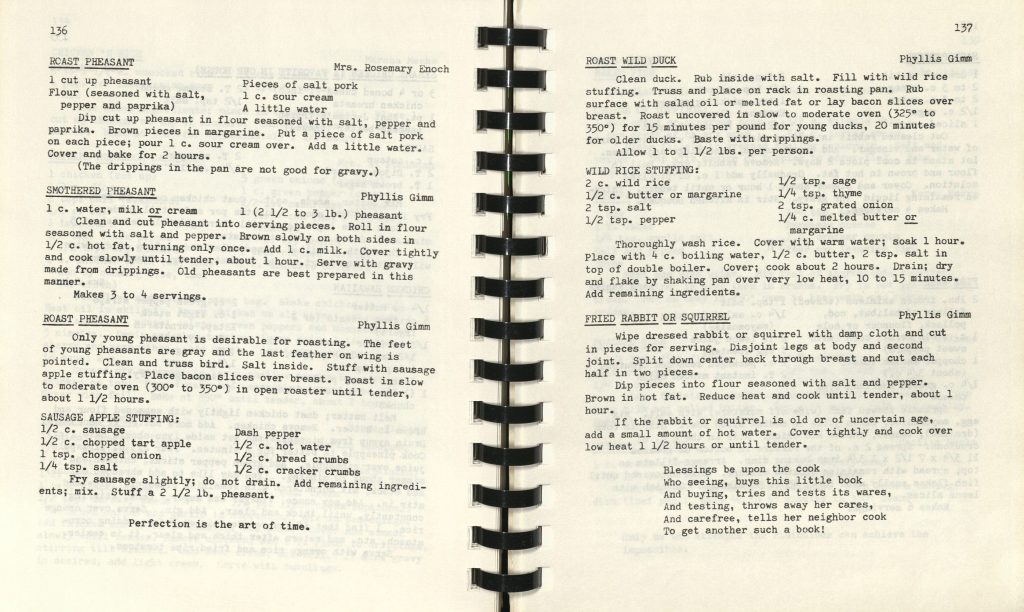 136
ROAST PHEASANT
Mrs. Rosemary Enoch
1 cut up pheasant Pieces of salt pork
Flour (seasoned with salt, 1 c. sour cream
pepper and paprika) A little water
Dip cut up pheasant in flour seasoned with salt, pepper and
paprika. Brown pieces in margarine. Put a piece of salt pork
on each piece; pour 1 c. sour cream over. Add a little water.
Cover and bake for 2 hours.
(The drippings in the pan are not good for gravy.)
SMOTHERED PHEASANT
Phyllis Gimm
1 c. water, milk or cream 1 (2 1/2 to 3 lb.) pheasant
Clean and cut pheasant into serving pieces. Roll in flour
seasoned with salt and pepper. Brown slowly on both sides in
1/2 c. hot fat, turning only once. Add 1 c. milk. Cover tightly
and cook slowly until tender, about 1 hour. Serve with gravy
made from drippings. Old pheasants are best prepared in this
manner.
Makes 3 to 4 servings.
ROAST PHEASANT
Phyllis Gimm
Only young pheasant is desirable for roasting. The feet
of young pheasants are gray and the last feather on wing is
pointed. Clean and truss bird. Salt inside. Stuff with sausage
apple stuffing. Place bacon slices over breast. Roast in slow
to moderate oven (300° to 350°) in open roaster until tender,
about 1 1/2 hours.
SAUSAGE APPLE STUFFING:
1/2 c. sausage Dash pepper
1/2 c. chopped tart apple 1/2 c. hot water
1 tsp. chopped onion 1/2 c. bread crumbs
1/4 tsp. salt 1/2 c. cracker crumbs
Fry sausage slightly; do not drain. Add remaining ingredi-
ents; mix. Stuff a 2 1/2 lb. pheasant.
Perfection is the art of time.
137
ROAST WILD DUCK Phyllis Gimm
Clean duck. Rub inside with salt. Fill with wild rice
stuffing. Truss and place on rack in roasting pan. Rub
surface with salad oil or melted fat or lay bacon slices over
breast. Roast uncovered in slow to moderate oven (325° to
350°) for 15 minutes per pound for young ducks, 20 minutes
for older ducks. Baste with drippings.
Allow 1 to 1 1/2 lbs. per person.
WILD RICE STUFFING:
2 c. wild rice 1/2 tsp. sage
1/2 c. butter or margarine 1/4 tsp. thyme
2 tsp. salt 2 tsp. grated onion
1/2 tsp. pepper 1/4 c. melted butter or
margarine
Thoroughly wash rice. Cover with warm water; soak 1 hour.
Place with 4 c. boiling water, 1/2 c. butter, 2 tsp. salt in
top of double boiler. Cover; cook about 2 hours. Drain; dry
and flake by shaking pan over very low heat, 10 to 15 minutes.
Add remaining ingredients.
FRIED RABBIT OR SQUIRREL Phyllis Gimm
Wipe dressed rabbit or squirrel with damp cloth and cut
in pieces for serving. Disjoint legs at body and second
joint. Split down center back through breast and cut each
half in two pieces.
Dip pieces into flour seasoned with salt and pepper.
Brown in hot fat. Reduce heat and cook until tender, about 1
hour.
If the rabbit or squirrel is old or of uncertain age,
add a small amount of hot water. Cover tightly and cook over
low heat 1 1/2 hours or until tender.
Blessings be upon the cook
Who seeing, buys this little book
And buying, tries and tests its wares,
And testing, throws away her cares,
And carefree, tells her neighbor cook
To get another such a book!